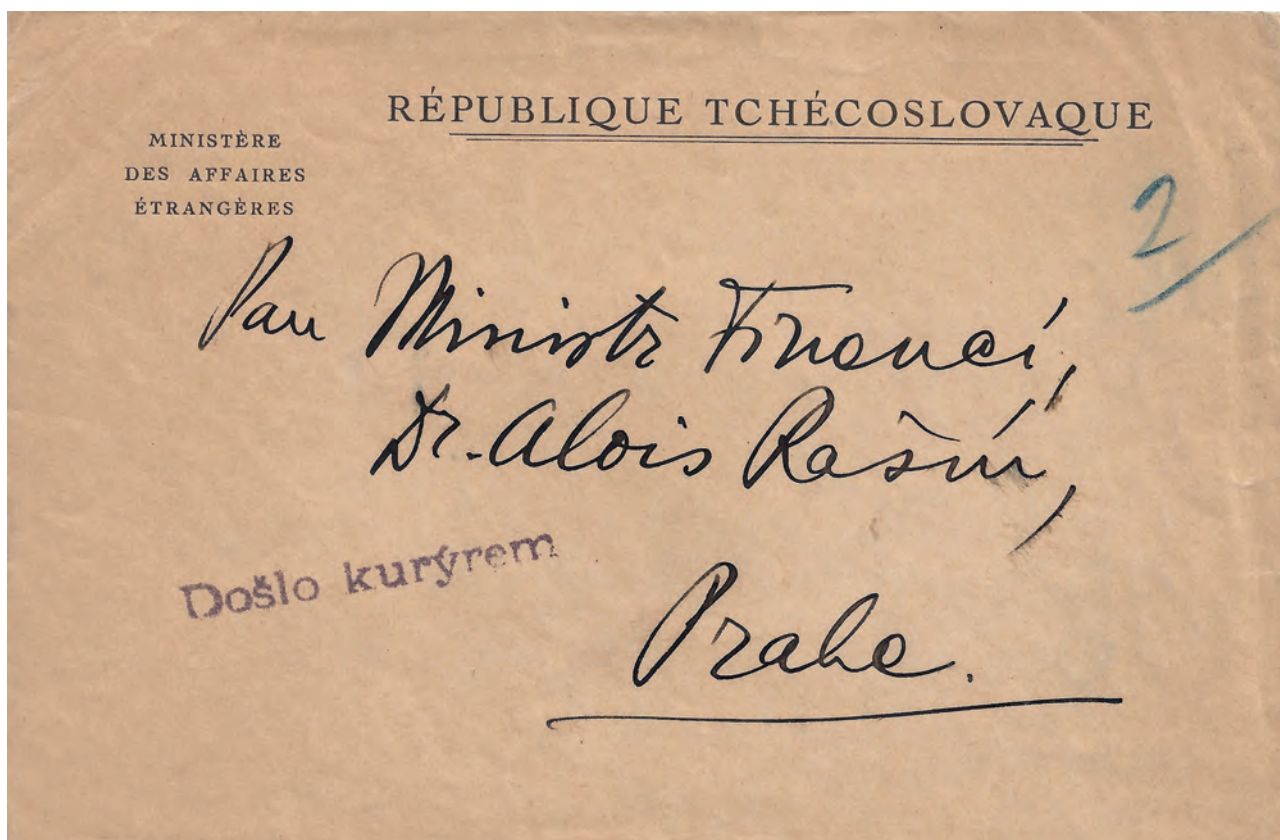 RÉPUBLIQUE TCHÉCOSLOVAQUE
MINISTÈRE
DES AFFAIRES
ÉTRANGÈRES
2/
Pan Ministr Financí,
Dr. Alois Rašín,
Došlo kurýrem
Praha.